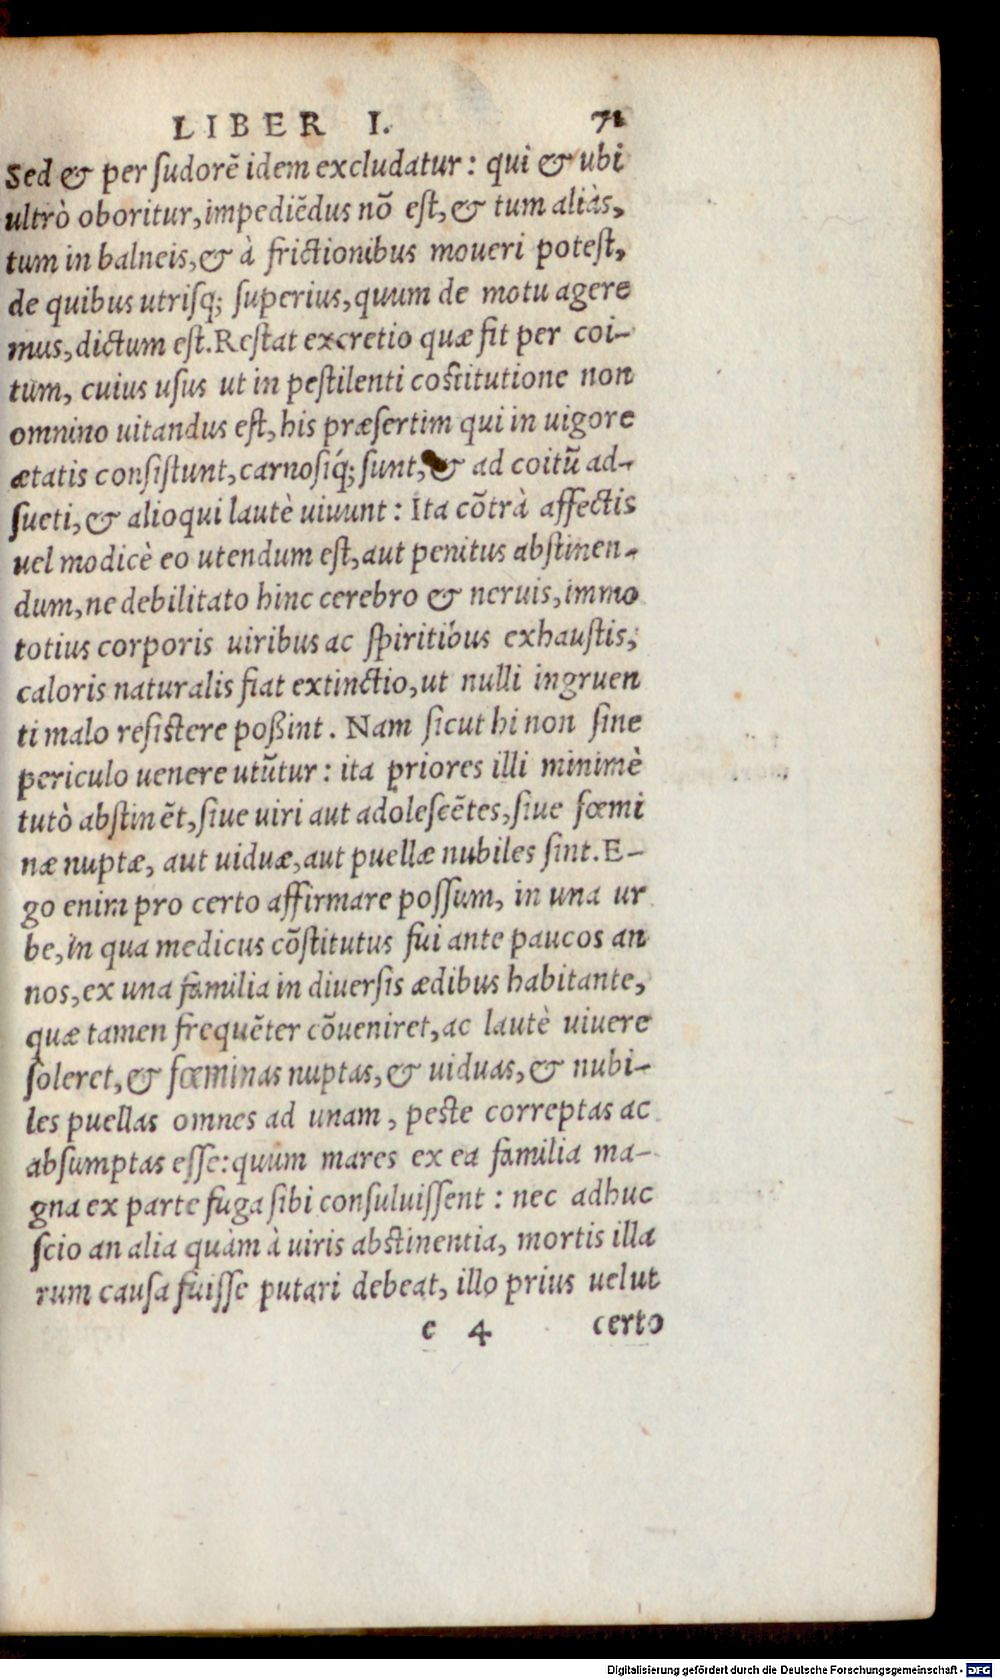 LIBER I. 71
Sed & per ſudorẽ idem excludatur: quì & ubi
ultrò oboritur, impediẽdus nõ eſt, & tum aliàs,
tum in balneis, & à frictionibus moueri poteſt,
de quibus utriſq; ſuperius, quum de motu agere
mus, dictum eſt. Reſtat excretio quæ fit per coi-
tum, cuius uſus ut in peſtilenti cõſtitutione non
omnino uitandus eſt, his præſertim qui in uigore
ætatis conſiſtunt, carnoſiq́; ſunt, & ad coitũ ad-
ſueti, & alioqui lautè uiuunt: Ita cõtrà affectis
uel modicè eo utendum eſt, aut penitus abſtinen-
dum, ne debilitato hinc cerebro & neruis, immo
totius corporis uiribus ac ſpiritibus exhauſtis,
caloris naturalis fiat extinctio, ut nulli ingruen
ti malo reſiſtere poßint. Nam ſicut hi non ſine
periculo uenere utũtur: ita priores illi minimè
tutò abſtinẽt, ſiue uiri aut adoleſcẽtes, ſiue fœmi
næ nuptæ, aut uiduæ, aut puellæ nubiles ſint. E-
go enim pro certo affirmare poſſum, in una ur
be, in qua medicus cõſtitutus fui ante paucos an
nos, ex una familia in diuerſis ædibus habitante,
quæ tamen frequẽter cõueniret, ac lautè uiuere
ſoleret, & fœminas nuptas, & uiduas, & nubi-
les puellas omnes ad unam, peſte correptas ac
abſumptas eſſe: quùm mares ex ea familia ma-
gna ex parte fuga ſibi conſuluiſſent: nec adhuc
ſcio an alia quàm à uiris abſtinentia, mortis illa
rum cauſa fuiſſe putari debeat, illo prius uelut
e 4 certo
Digitalisierung gefördert durch die Deutsche Forschungsgemeinschaft - DFG